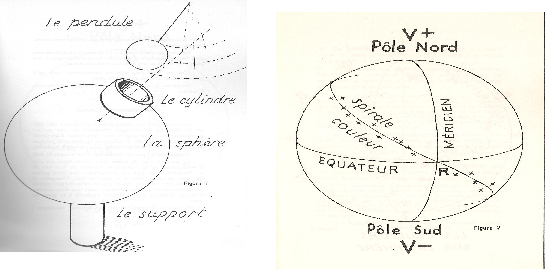 Le pendule
Le cylindre
La sphère
Figure
Le support
V+
Pôle Nord
spirale
couleur
MÉRIDIEN
EQUATEUR
R
Pôle Sud
Figure 2
V-